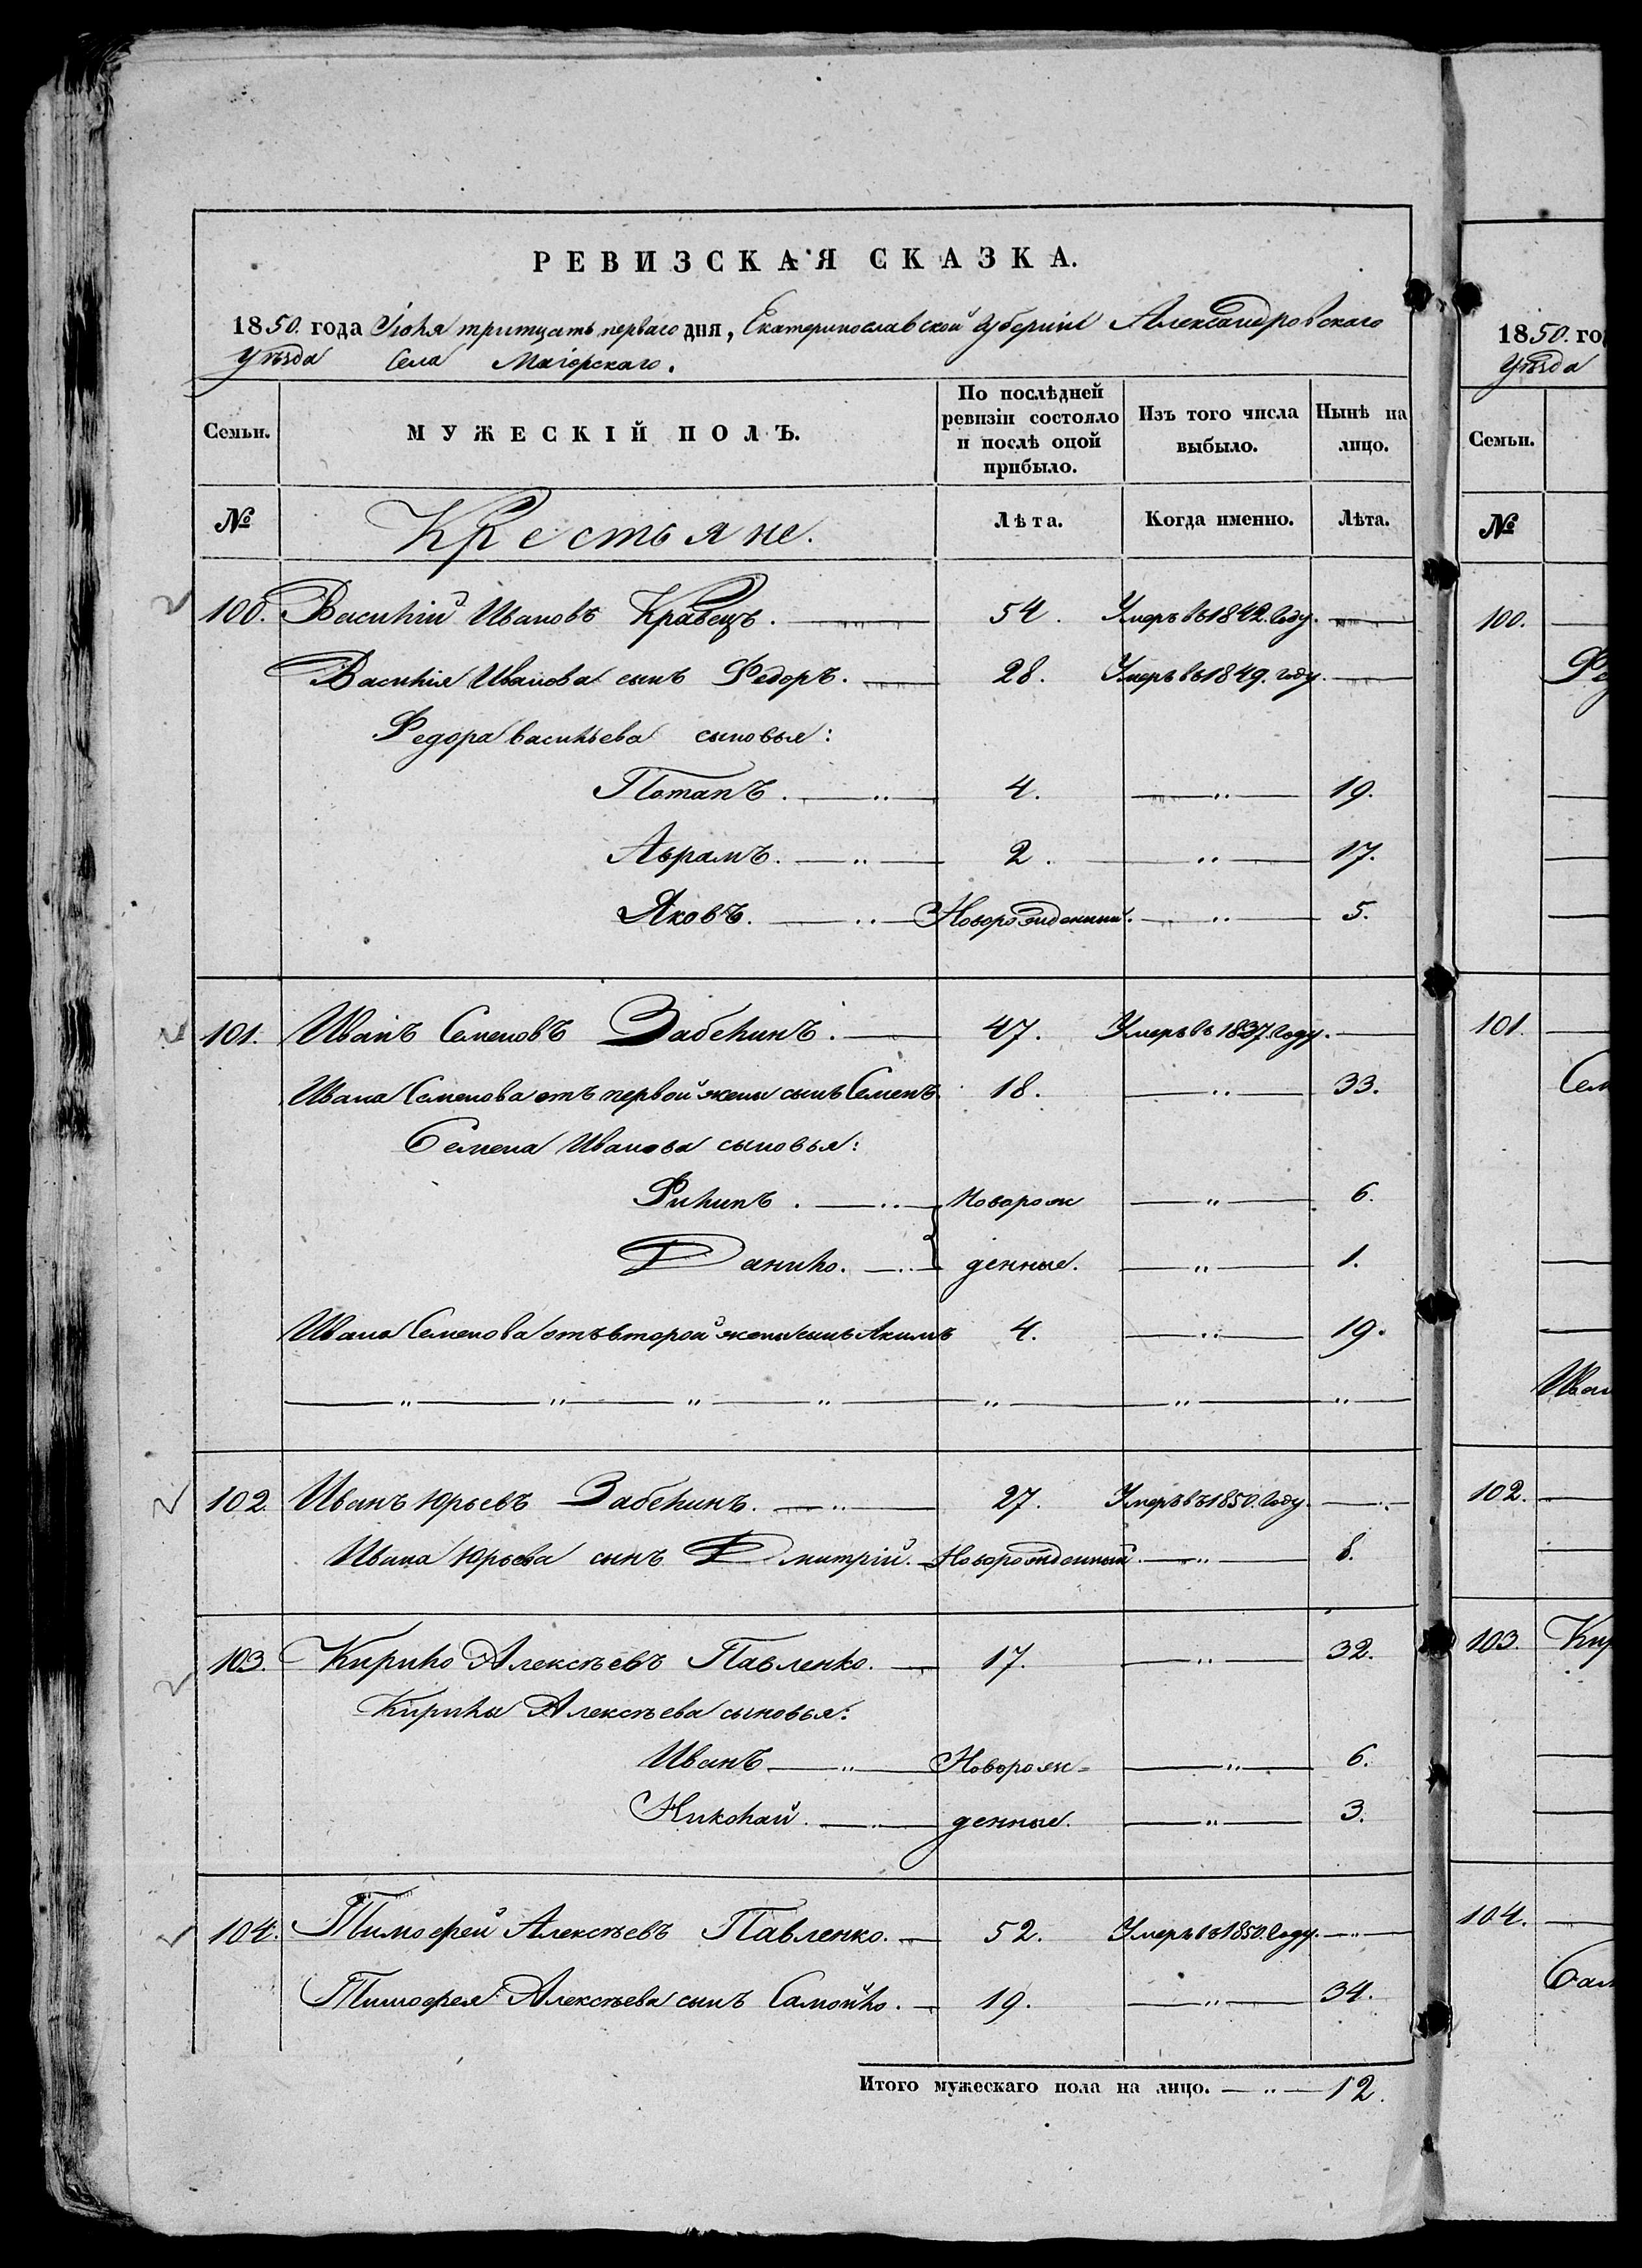 РЕВИЗСКАЯ СКАЗКА.
1850. года Іюля тритцать перваго дня, Екатеринославской Губерніи Александровскаго
уѣзда Села Магорскаго.
Семьи. МУЖЕСКІЙ ПОЛЪ. По послѣдней ревизіи состояло и послѣ оной прибыло. Изъ того числа выбыло. Нынѣ на лицо.
№ Крестьяне. Лѣта. Когда именно. Лѣта.
100. Василій Ивановъ Кравецъ. 54. Умеръ въ 1842. году.
Василія Иванова сынъ Федоръ. 28. Умеръ въ 1849. году.
Федора Васильева сыновья:
Потапъ. 4. 19.
Аврамъ. 2. 17.
Яковъ. Новорожденный. 5.
101. Иванъ Семеновъ Забелинъ. 47. Умеръ въ 1837. году.
Ивана Семенова отъ первой жены сынъ Семенъ 18. 33.
Семена Иванова сыновья:
Филипъ. Новорож 6.
Данило. денные. 1.
Ивана Семенова отъ второй жены сынъ Акимъ 4. 19.
102. Иванъ Юрьевъ Забелинъ. 27. Умеръ въ 1850. году.
Ивана Юрьева сынъ Дмитрій. Новорожденный. 8.
103. Кирило Алексѣевъ Павленко. 17. 32.
Кирилы Алексѣева сыновья:
Иванъ Новорож= 6.
Николай. денные. 3.
104. Тимофей Алексѣевъ Павленко. 52. Умеръ въ 1850. году.
Тимофея Алексѣева сынъ Самойло. 19. 34.
Итого мужескаго пола на лицо. 12.
1850. го
уѣзда
Семьи.
№
100.
101.
Сем
Иван
102.
103. Кир
104.
Сам